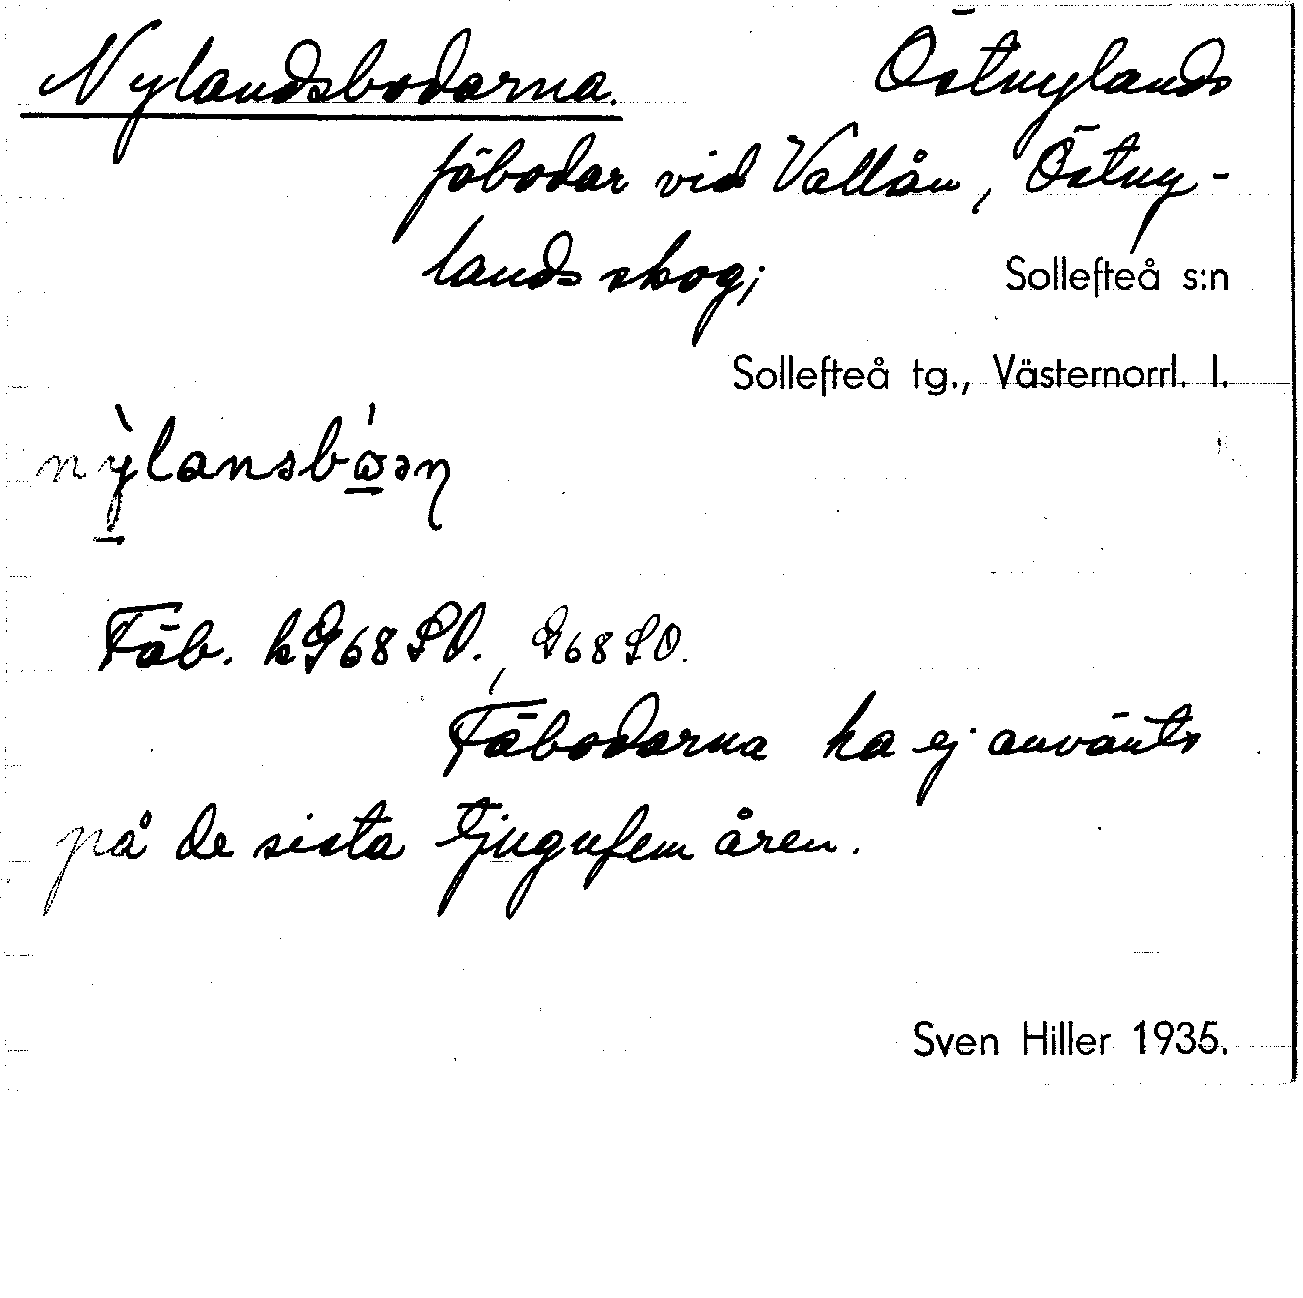 Nylandsbodarna. Östnylands
fäbodar vid Vallån, Östny-
lands skog; Sollefteå s:n
Sollefteå tg., Västernorrl. l.
nỳlansbó̱ən
Fäb. k G68 SO., G68 SO.
Fäbodarna ha ej använts
på de sista tjugufem åren.
Sven Hiller 1935.